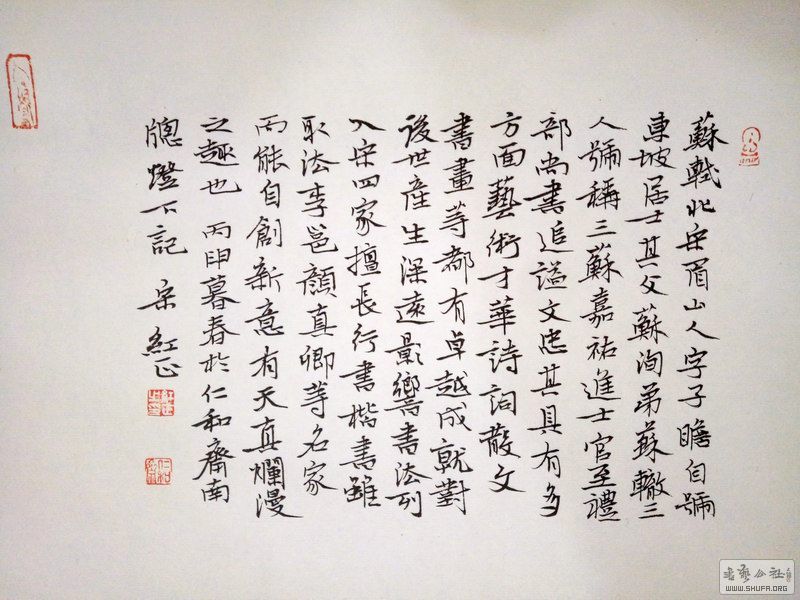 蘇軾北宋眉山人字子瞻自號
東坡居士其父蘇洵弟蘇轍三
人號稱三蘇嘉祐進士官至禮
部尚書追謚文忠其具有多
方面藝術才華詩詞散文
書畫等都有卓越成就對
後世產生深遠影響書法列
入宋四家擅長行書楷書雖
取法李邕顏真卿等名家
而能自創新意有天真爛漫
之趣也 丙申暮春於仁和齋南
牕燈下記 宋紅正
書藝公社
WWW.SHUFA.ORG